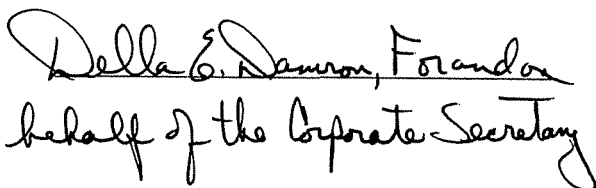 Della E. Damron, For and on
behalf of the Corporate Secretary